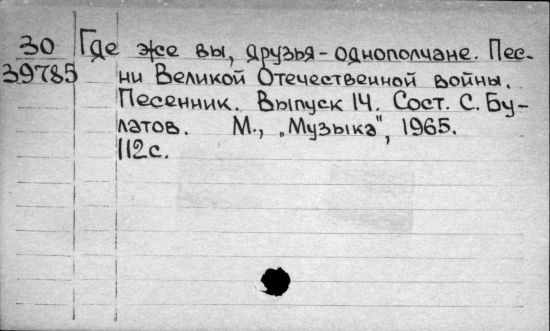 30 Где же вы, друзья-однополчане. Пес-
39785 ни Великой Отечественной войны.
Песенник. Выпуск 14. Сост. С. Бу-
латов. М., „Музыка", 1965.
112с.